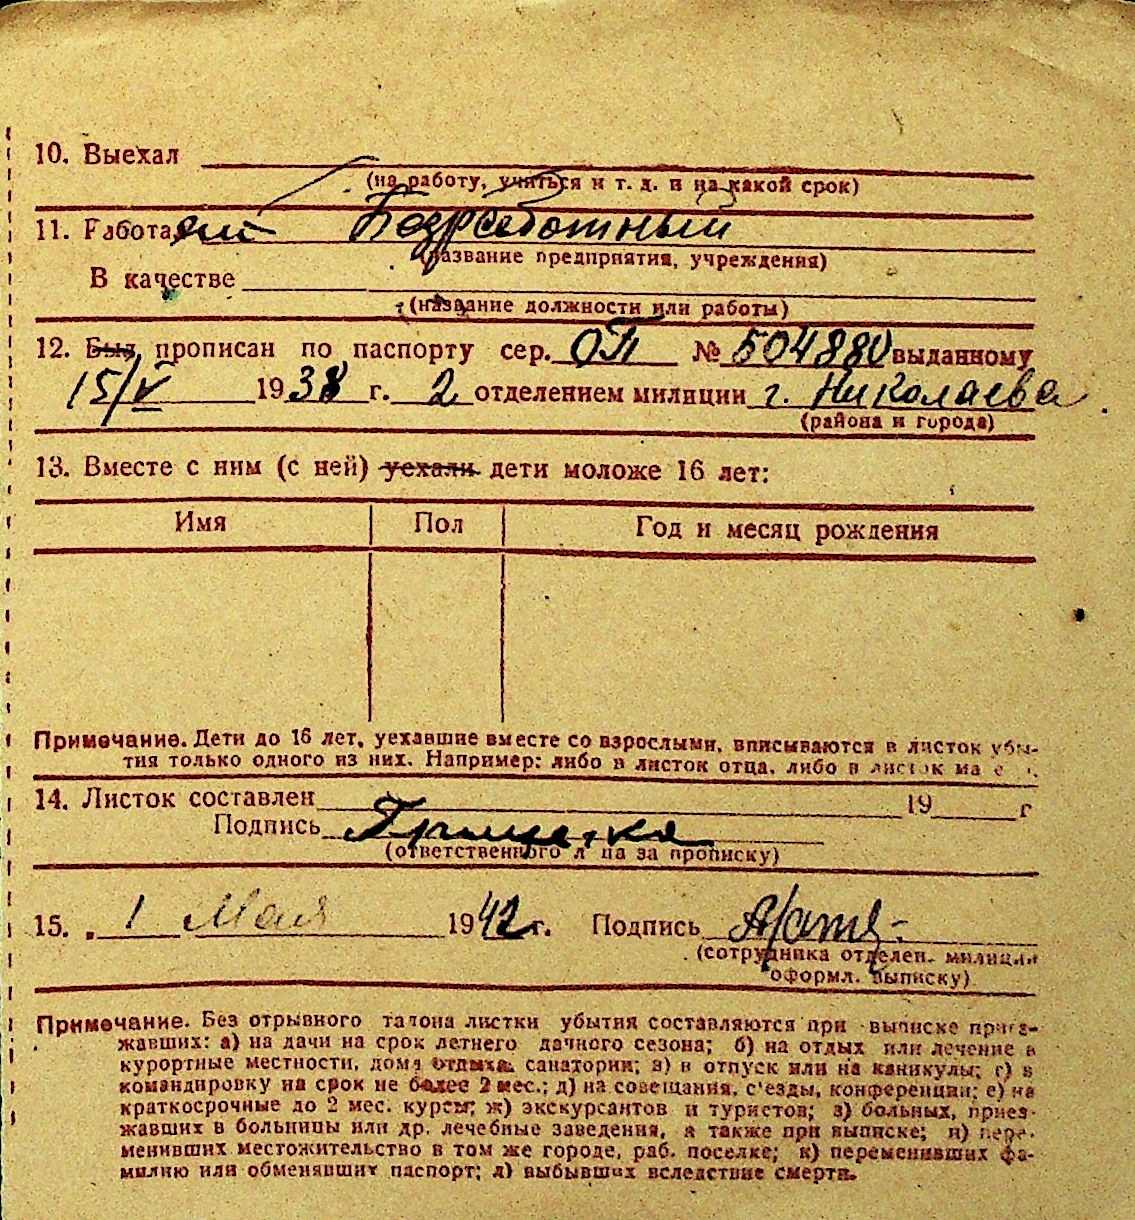 10. Выехал
(на работу, учиться и т. д. и на какой срок)
11. Работа ет Безработный
(название предприятия, учреждения)
В качестве
(название должности или работы)
12. Был прописан по паспорту сер. ОП № 504880 выданному
15/V 1938 г. 2 отделением милиции г. Николаева
(района и города)
13. Вместе с ним (с ней) уехали дети моложе 16 лет:
Имя Пол Год и месяц рождения
Примечание. Дети до 16 лет, уехавшие вместе со взрослыми, вписываются в листок убы-
тия только одного из них. Например: либо в листок отца, либо в листок
14. Листок составлен 19 г
Подпись
(ответственного лица за прописку)
15. 1 Мая 1942 г. Подпись
(сотрудника отделен. милиции
оформл. выписку)
Примечание. Без отрывного талона листки убытия составляются при выписке приез-
жавших: а) на дачи на срок летнего дачного сезона; б) на отдых или лечение в
курортные местности, дома отдыха, санатории; в) в отпуск или на каникулы; г) в
командировку на срок не более 2 мес.; д) на совещания, с'езды, конференции; е) на
краткосрочные до 2 мес. курсы; ж) экскурсантов и туристов; з) больных, приез-
жавших в больницы или др. лечебные заведения, а также при выписке; и) пере-
менивших местожительство в том же городе, раб. поселке; к) переменивших фа-
милию или обменявших паспорт; л) выбывших вследствие смерти.